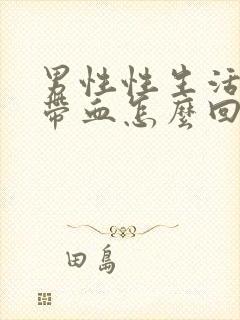 男性性生活
帶血怎麼回
田島